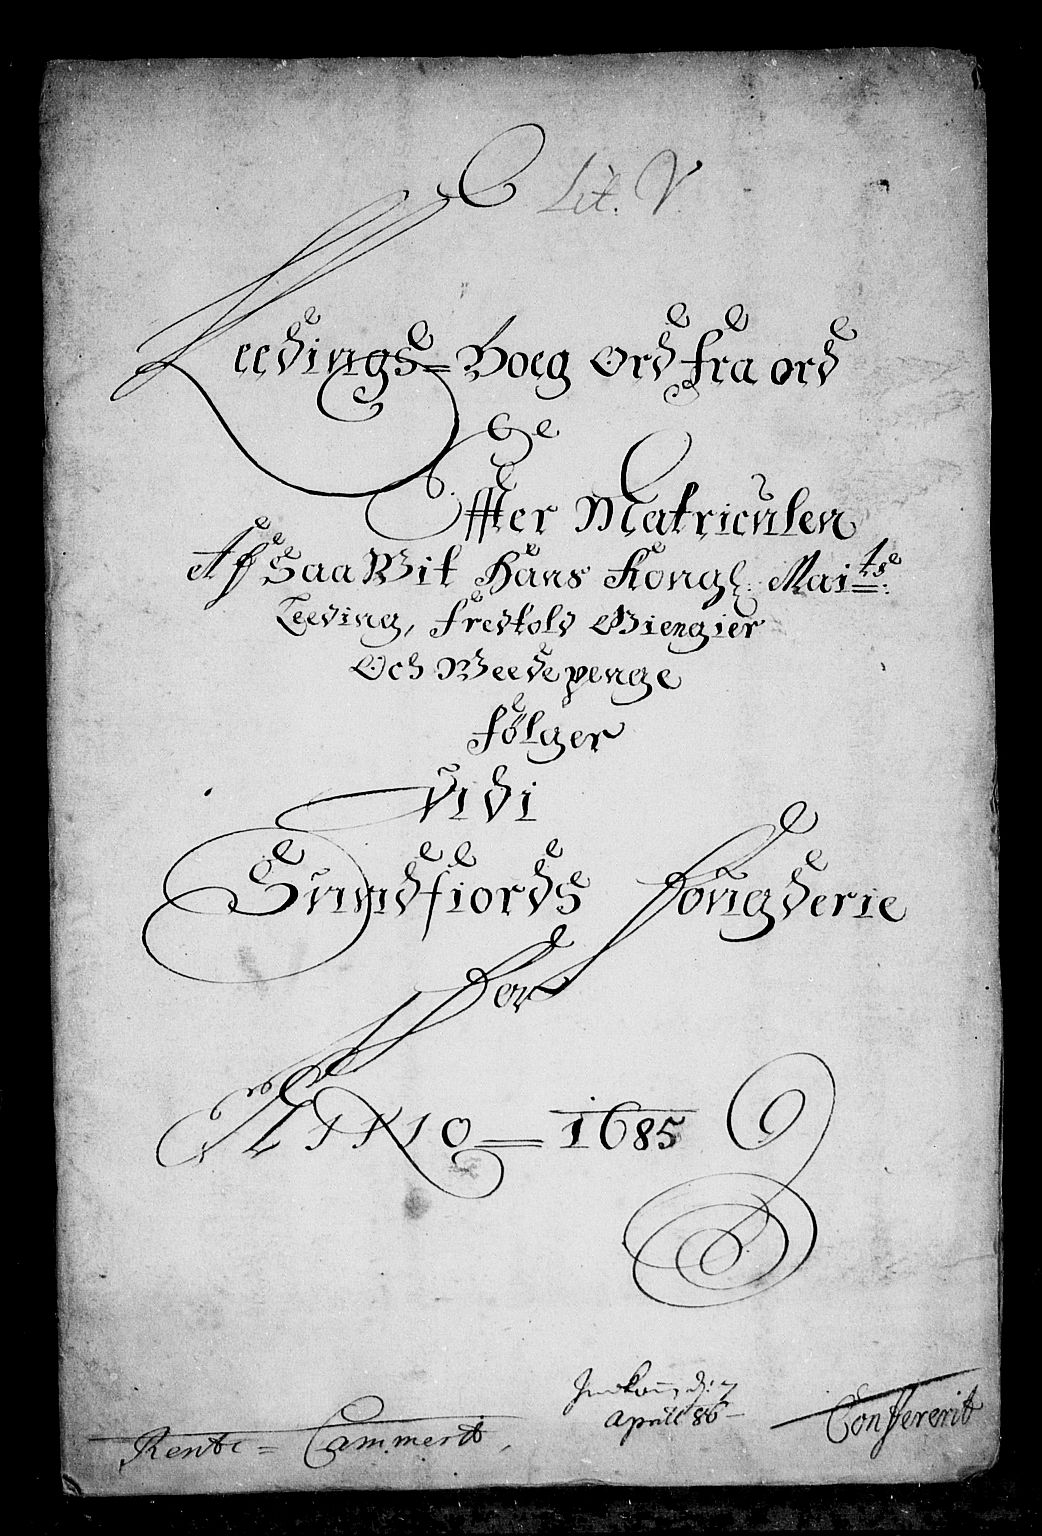 Lit. V.
Leedings=Boeg Ord fra ord
Effter Matriculen
Af Saa Wit Hans Kongl: Maits:
Leeding, fredtold Giengier
Och Weedepenge
følger
Udi
Sundfiords Fougderie
For
ANNO = 1685
Indkom d: 7
Aprill 86
Rente=Cammerit
Confererit